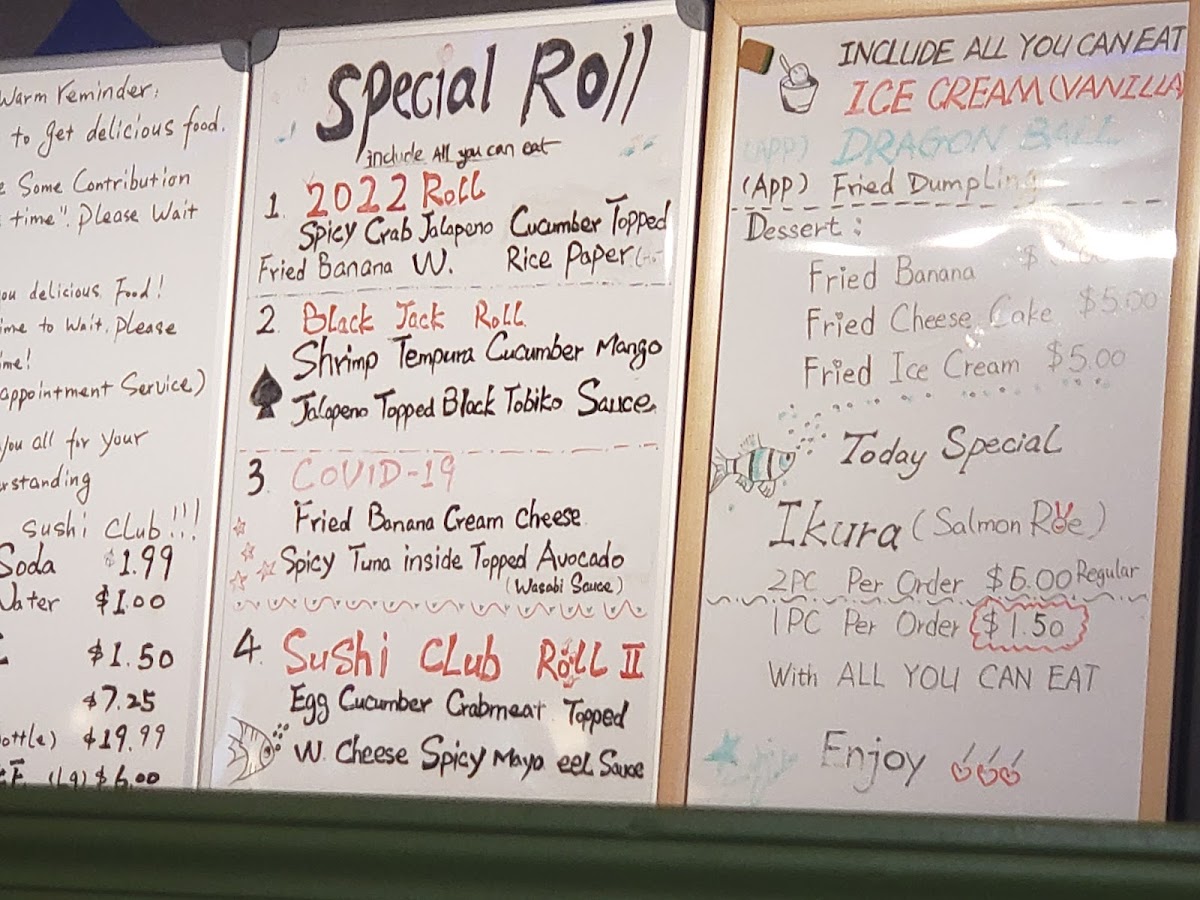 Warm reminder:
to get delicious food.
Some Contribution
time". Please Wait
delicious Food!
to Wait. Please
appointment Service)
you all for your
Sushi Club!!!
Soda $1.99
Water $1.00
$1.50
$7.25
$19.99
(lg) $6.00
Special Roll
include All you can eat
1. 2022 Roll
Spicy Crab Jalapeno Cucumber Topped
Fried Banana W. Rice Paper
2. Black Jack Roll
Shrimp Tempura Cucumber Mango
Jalapeno Topped Black Tobiko Sauce
3. COVID-19
Fried Banana Cream Cheese
Spicy Tuna inside Topped Avocado
(Wasabi Sauce)
4. Sushi Club Roll II
Egg Cucumber Crabmeat Topped
W. Cheese Spicy Mayo eel Sauce
INCLUDE ALL YOU CAN EAT
ICE CREAM (VANILLA
(APP) DRAGON BALL
(App) Fried Dumpling
Dessert:
Fried Banana
Fried Cheese Cake $5.00
Fried Ice Cream $5.00
Today Special
Ikura (Salmon Roe)
2PC Per Order $6.00 Regular
1PC Per Order $1.50
With ALL YOU CAN EAT
Enjoy